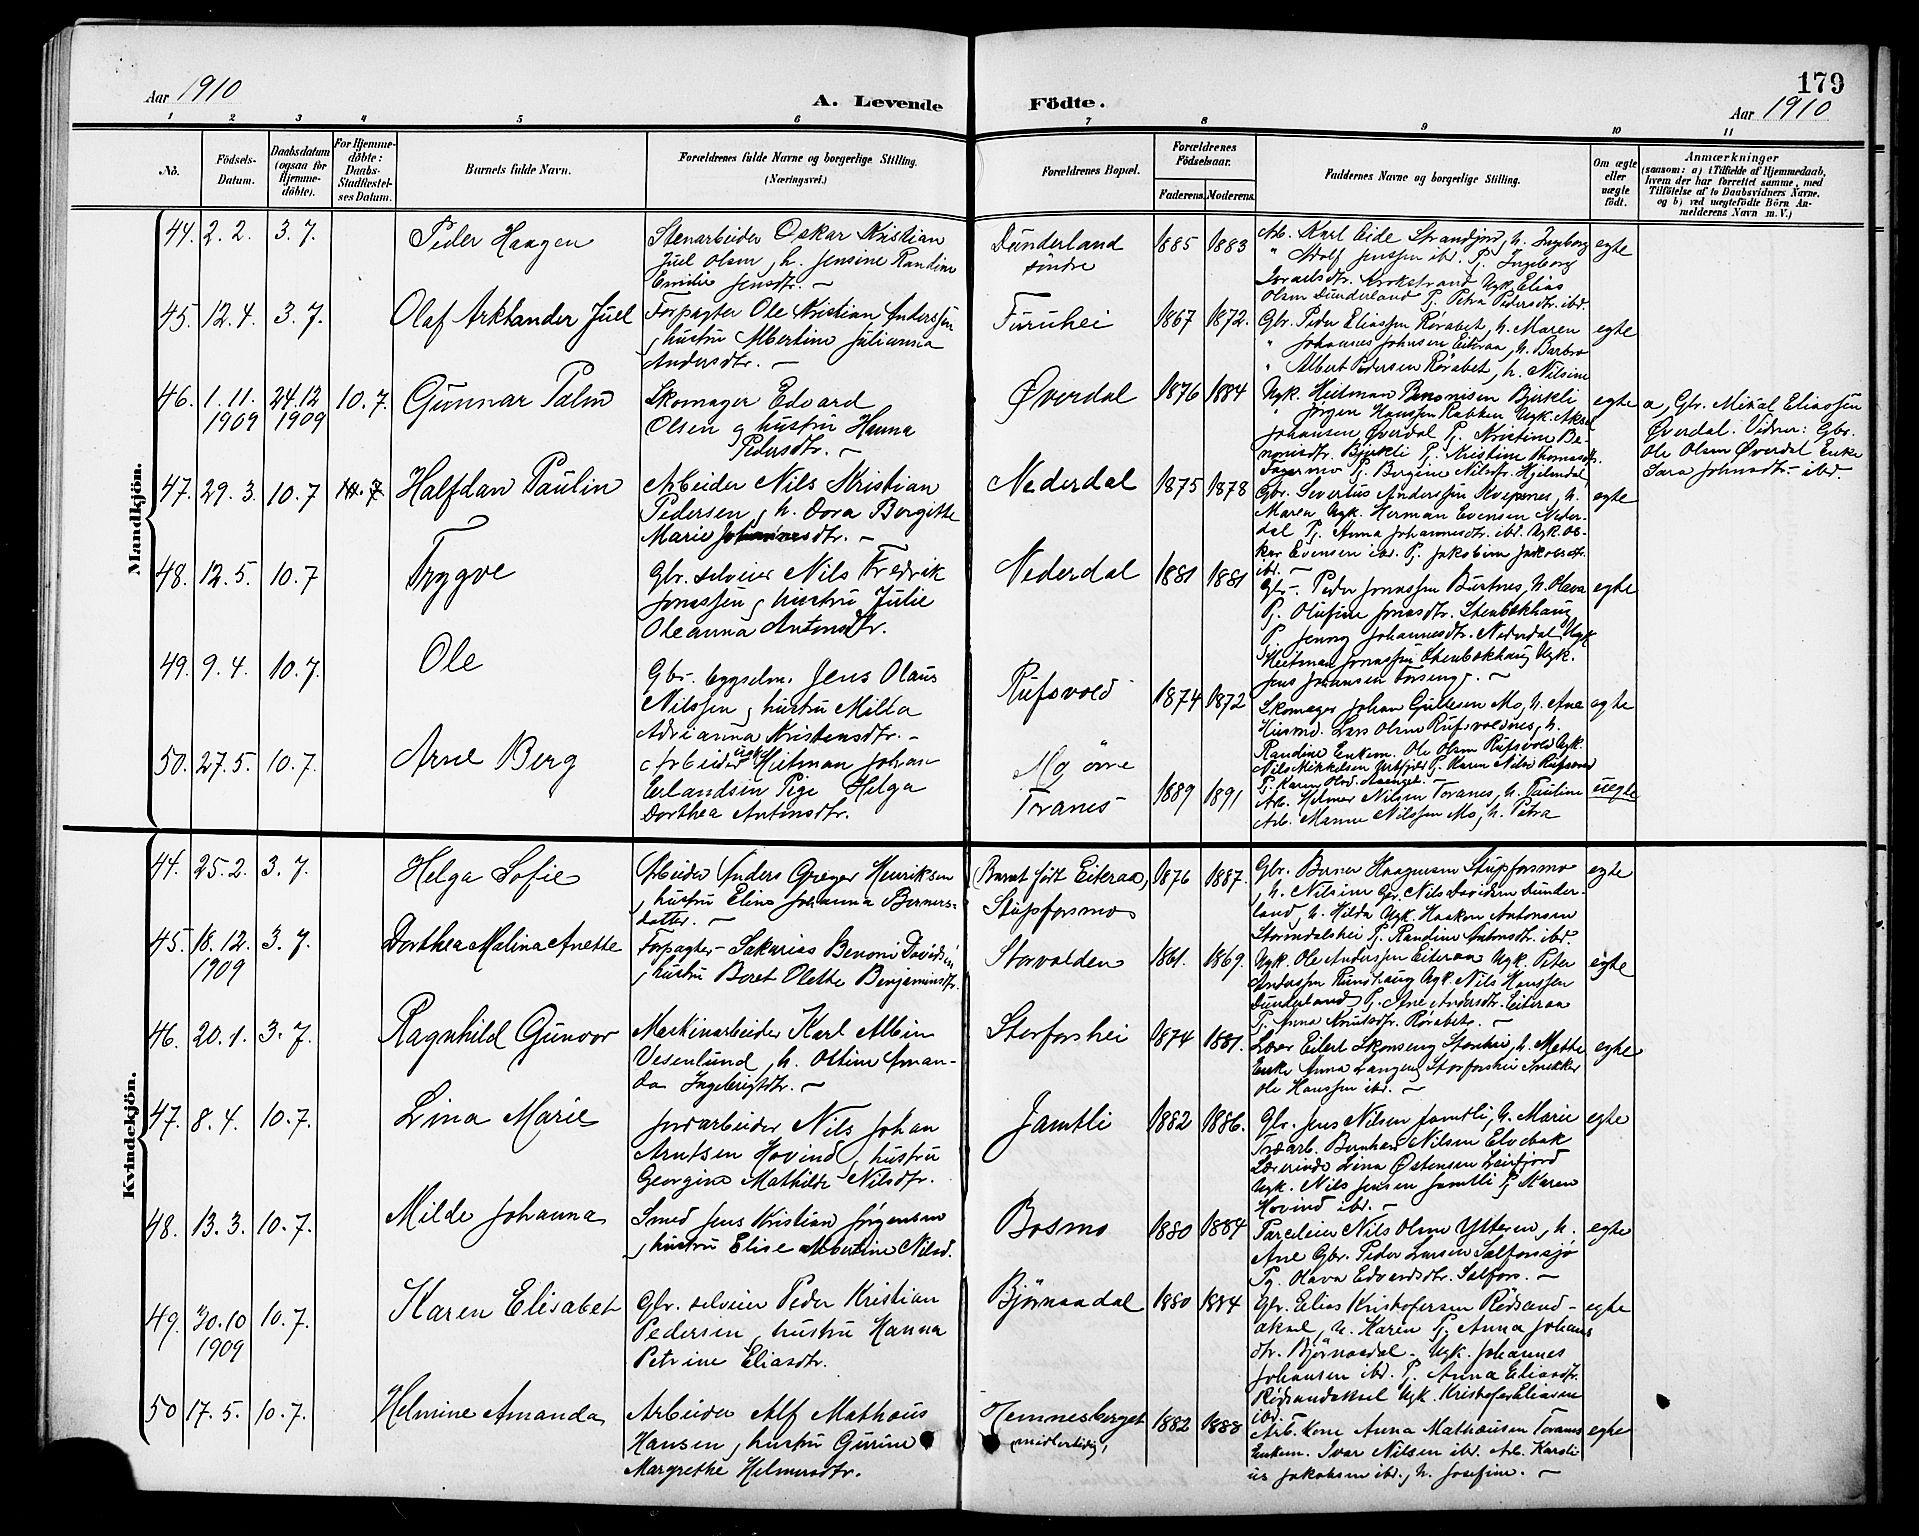 Aar 1910
A. Levende Födte.
179
Aar 1910
1 2 3 4 5 6 7 8 9 10 11
No.
Födsels-Datum.
Daabsdatum (ogsaa for Hjemme-döbte).
For Hjemme-döbte: Daabs-Stadfæstel-ses Datum.
Barnets fulde Navn.
Forældrenes fulde Navne og borgerlige Stilling.
(Næringsvei.)
Forældrenes Bopæl.
Forældrenes Födselsaar.
Faderens. Moderens.
Faddernes Navne og borgerlige Stilling.
Om ægte eller uægte födt.
Anmærkninger
(saasom: a) i Tilfælde af Hjemmedaab,
hvem der har forrettet samme, med
Tilföielse af to Daabsvidners Navne.
og b) ved uægtefödte Börn An-
melderens Navn m. V.)
Mandkjön.
44. 2. 2. 3. 7. Peder Haagen
Stenarbeider Oskar Kristian
Juel Olsen, h. Jensine Randine
Emilie Jensdtr. –
Dunderland
søndre
1885 1883
Arb. Karl Eide Strandjord, h. Ingeborg
" Adolf Jenssen ibd. Pj. Ingeborg
Israelsdtr. Krokstrand Ugk. Elias
Olsen Dunderland Pj. Petra Pedersdtr. ibd.
egte
45. 12. 4. 3. 7. Olaf Arklander Juel
Forpagter Ole Kristian Anderssen
, hustru Albertine Julianna
Andersdtr. –
Furuhei
1867 1872.
Gbr. Peder Eliassen Rørabet, h. Maren
" Johannes Johnsen Eiteraa, h. Barbro
" Albert Pedersen Rørabet, h. Nilsine
egte
46. 1. 11. 1909 24.12 1909 10. 7. Gunnar Palm
Skomager Edvard
Olsen og hustru Hanna
Pedersdtr. –
Øverdal
1876 1884
Ugk. Heitman Benonisen Bjerkli
" Jørgen Hanssen Rabben Ugk. Aksel
Johansen Øverdal Pj. Kristine Be-
nonisdtr. Bjerkli Pj. Kristine Thomasdtr.
Pj. Bergine Nilsdtr. Hjelmdal
egte
a, Gbr. Mikal Eliassen
Øverdal. Vidner: Gbr.
Ole Olsen Øverdal Enke
Sara Johnsdtr. – ibd.
47. 29. 3. 10. 7 10. 7 Halfdan Paulin
Arbeider Nils Kristian
Pedersen, h. Dora Bergitte
Marie Johannesdtr. –
Nederdal
1875 1878
Gbr. Severtus Anderssen Kvepsnes, h.
Maren Ugk. Herman Evensen Neder-
dal Pj. Anna Johannesdtr. ibd. Ugk. Os-
kar Evensen ibd. Pj. Jakobine Jakobsdtr.
ibd. –
egte
48. 12. 5. 10. 7 Trygve
Gbr. selveier Nils Fredrik
Jonassen, hustru Julie
Oleanna Antonsdtr.
Nederdal
1881 1881
Gbr – Peder Jonassen Burtnes, h. Olava
Pj. Olufine Jonasdtr. Stenbækhaug
P. Jenny Johannesdtr. Nederdal Ugk
Heitman Jonassen Stenbækhaug Ugk.
Jens Johansen Forseng. –
egte
49. 9. 4. 10. 7. Ole
Gbr. bygselm. Jens Olaus
Nilssen, hustru Milla
Adrianna Kristensdtr. –
Rufsvold
1874 1872
Skomager Johan Gullesen Mo, h. Ane
Husmd. Lars Olsen Rufsvoldnes, h.
Randine Enkem. Ole Olsen Rufsvold Ugk.
Nils Mikkelsen Pj. Karen Nilsd. Rufsvold
Pj. Karen
egte
50. 27. 5. 10. 7. Arne Berg
Arbeider Ugk. Heitman Johan
Erlandsen Pige Helga
Dorthea Antonsdtr.
Mo, øvre
Toranes –
1889 1891
Arb. Hilmer Nilsen Toranes, h. Pauline
Arb. Manne Nilssen Mo, h. Petra
uegte
Kvindekjön.
44. 25. 2. 3. 7. Helga Sofie
Arbeider Anders Greger Henriksen
, hustru Eline Johanna Berners-
datter. –
(Barnet født Eiteraa)
Stupforsmo
1876 1887.
Gbr. Berner Haagensen Stupforsmo
, h. Nilsine Gbr. Nils Davidsen Dunder-
land, h. Hilda Ugk. Haaken Antonsen
Stormdalshei Pj. Randine Antonsdtr. ibd.
egte
45. 18. 12. 1909 3. 7. Dorthea Malina Anette
Forpagter – Sakarias Benoni Davidsen
, hustru Beret Olette Benjaminsdtr.
Storvolden
1861. 1869.
Ugk. Ole Anderssen Eiteraa Ugk. Peter
Anderssen Rundhaug Ugk. Nils Hanssen
Dunderland, Pj. Ane Andersdtr. Eiteraa
Pj. Anna Knutsdtr. Rørabet. –
egte
46. 20. 1. 3. 7. Ragnhild Gunvor
Maskinarbeider Karl Albin
Vesenlund, h. Oline Aman-
da Ingebrigtsdtr. –
Storforshei
1874 1881.
Lærer Eilert Skonseng Storshei, h. Mette
Enke Anna Langeng Storforshei Snekker
Ole Hanssen ibd. –
egte
47. 8. 4. 10. 7. Lina Marie
Jordarbeider Nils Johan
Arntsen Hovind, hustru
Georgine Mathilde Nilsdtr.
Jamtli
1882 1886.
Gbr. Jens Nilsen Jamtli, h. Marie
Træarb. Bernhard Nilsen Elvebak
Lærerinde Lina Østensen Leirfjord
Ugk. Nils Jensen Jamtli Pj. Karen
Hovind ibd. –
egte
48. 13. 3. 10. 7. Milde Johanna
Smed Jens Kristian Jørgensen
, hustru Elise Albertine Nilsd.
Bosmo
1880 1884
Parceleier Nils Olsen Ytteren, h.
Ane Gbr. Peder Larsen Salfonsjø
Pg. Olava Edvardsdtr. Salfors. –
egte
49. 30.10 1909 10. 7. Karen Elisabet
Gbr. selveier Peder Kristian
Pedersen, hustru Hanna
Petrine Eliasdtr.
Bjørnaadal
1880 1884
Gbr. Elias Kristofersen Rødsand-
aksel, h. Karen Pj. Anna Johans
dtr. Bjørnaadal – Ugk. Johannes
Johansen ibd. Pj. Anna Eliasdtr.
Rødsandaksel Ugk. Kristofer Eliassen
ibd.
egte
50 17. 5. 10. 7. Helmine Amanda
Arbeider Alf Mathæus
Hansen, hustru Gurine
Margrethe Helmersdtr.
Hemnesberget
(midlertidig)
1882 1888
Arb. Kone Anna Mathæusen Toranes
Enkem. Ivar Nilsen ibd. Arb. Karoli
us Jakobsen ibd., h. Josefine. –
egte